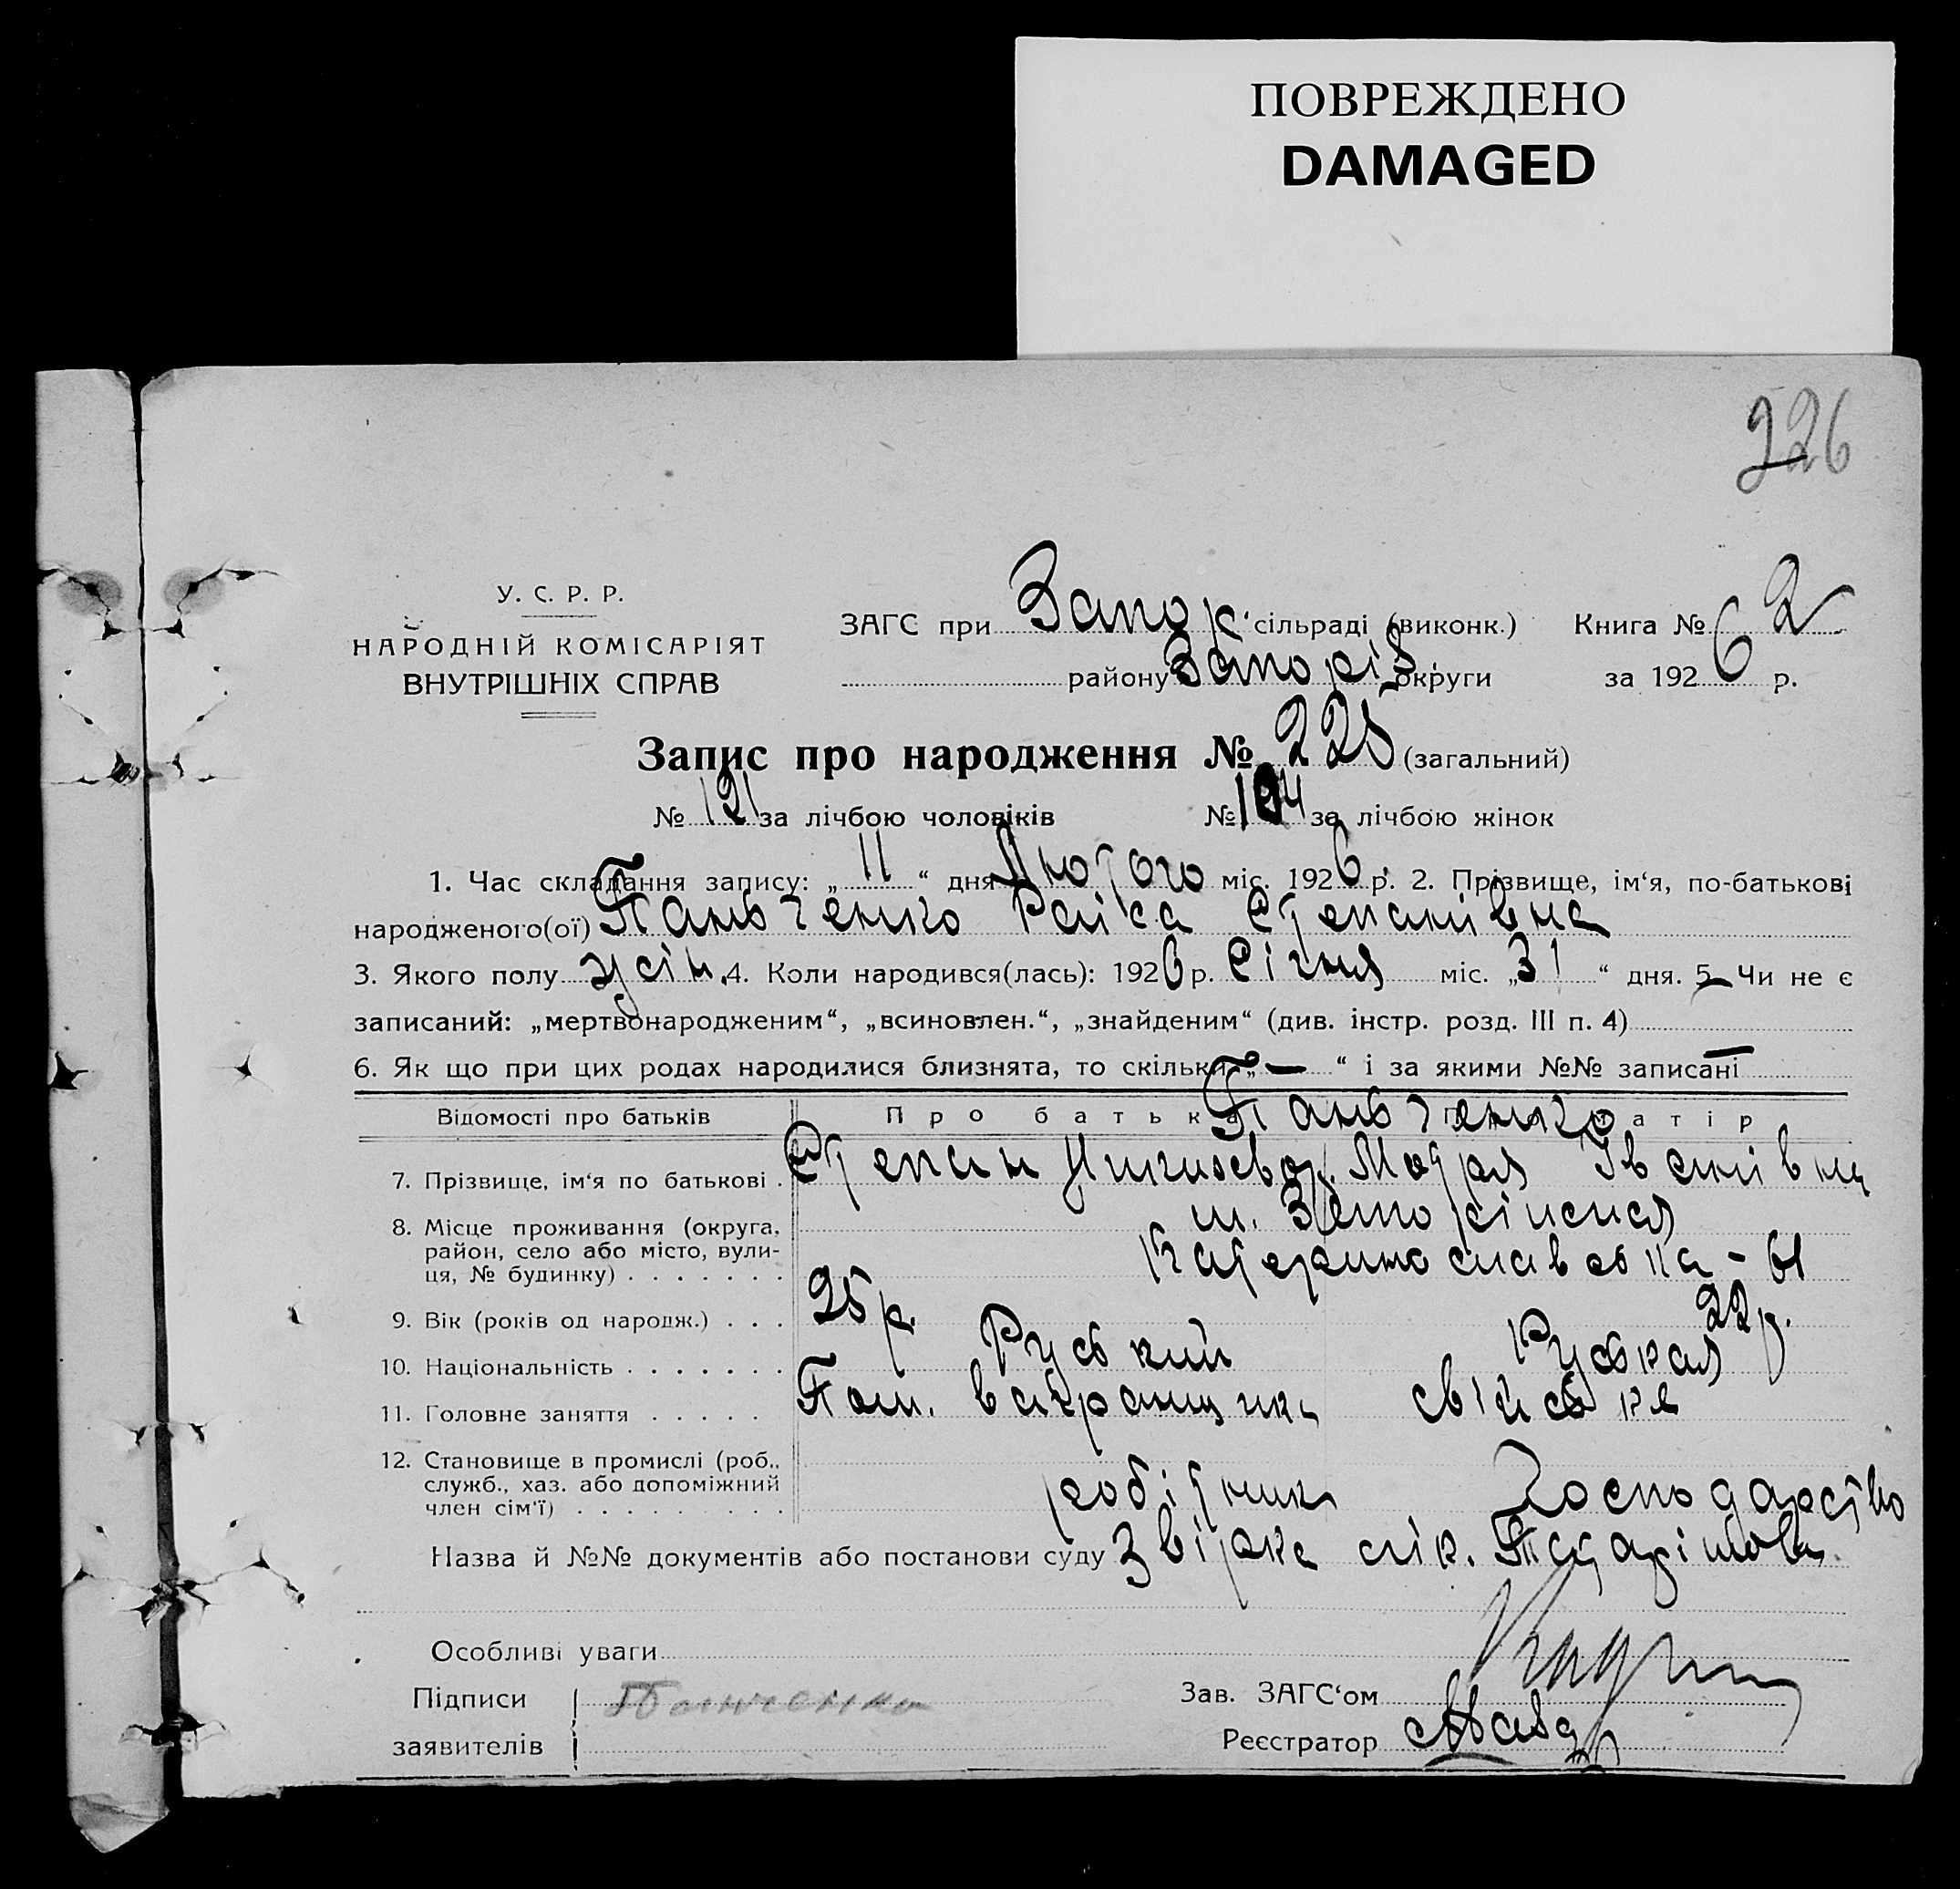 ПОВРЕЖДЕНО
DAMAGED
226
У. С. Р. Р.
НАРОДНІЙ КОМІСАРІЯТ
ВНУТРІШНІХ СПРАВ
ЗАГС при Запор. сільраді (виконк.) Книга № 2
району Запоріз. округи за 1926 р.
Запис про народження № 225 (загальний)
№ 121 за лічбою чоловіків № 104 за лічбою жінок
1. Час складання запису: „ 11 “ дня Лютого міс. 1926 р. 2. Прізвище, ім‘я, по-батькові
народженого(ої) Паньченко Раїса Степанівна
3. Якого полу жін. 4. Коли народився(лась): 1926 р. Січня міс. „ 31 “ дня. 5 — Чи не є
записаний: „мертвонародженим“, „всиновлен.“, „знайденим“ (див. інстр. розд. III п. 4)
6. Як що при цих родах народилися близнята, то скільки „ — “ і за якими №№ записані —
Відомості про батьків Про батька Про матір
Паньченко
7. Прізвище, ім‘я по батькові . Степан Мотря Іванівна
8. Місце проживання (округа, м. Запоріжжя
район, село або місто, вули-
ця, № будинку) . . . . . . . Катеринославська - 61
9. Вік (років од народж.) . . . 25 р. 22 р.
10. Національність . . . . . . . Руський Руская
11. Головне заняття . . . . . Пом. свійське
12. Становище в промислі (роб.,
служб., хаз. або допоміжний
член сім'ї) . . . . . . . . . робітник господарство
Назва й №№ документів або постанови суду лік.
Особливі уваги
Підписи Панченко Зав. ЗАГС‘ом
заявителів Реєстратор